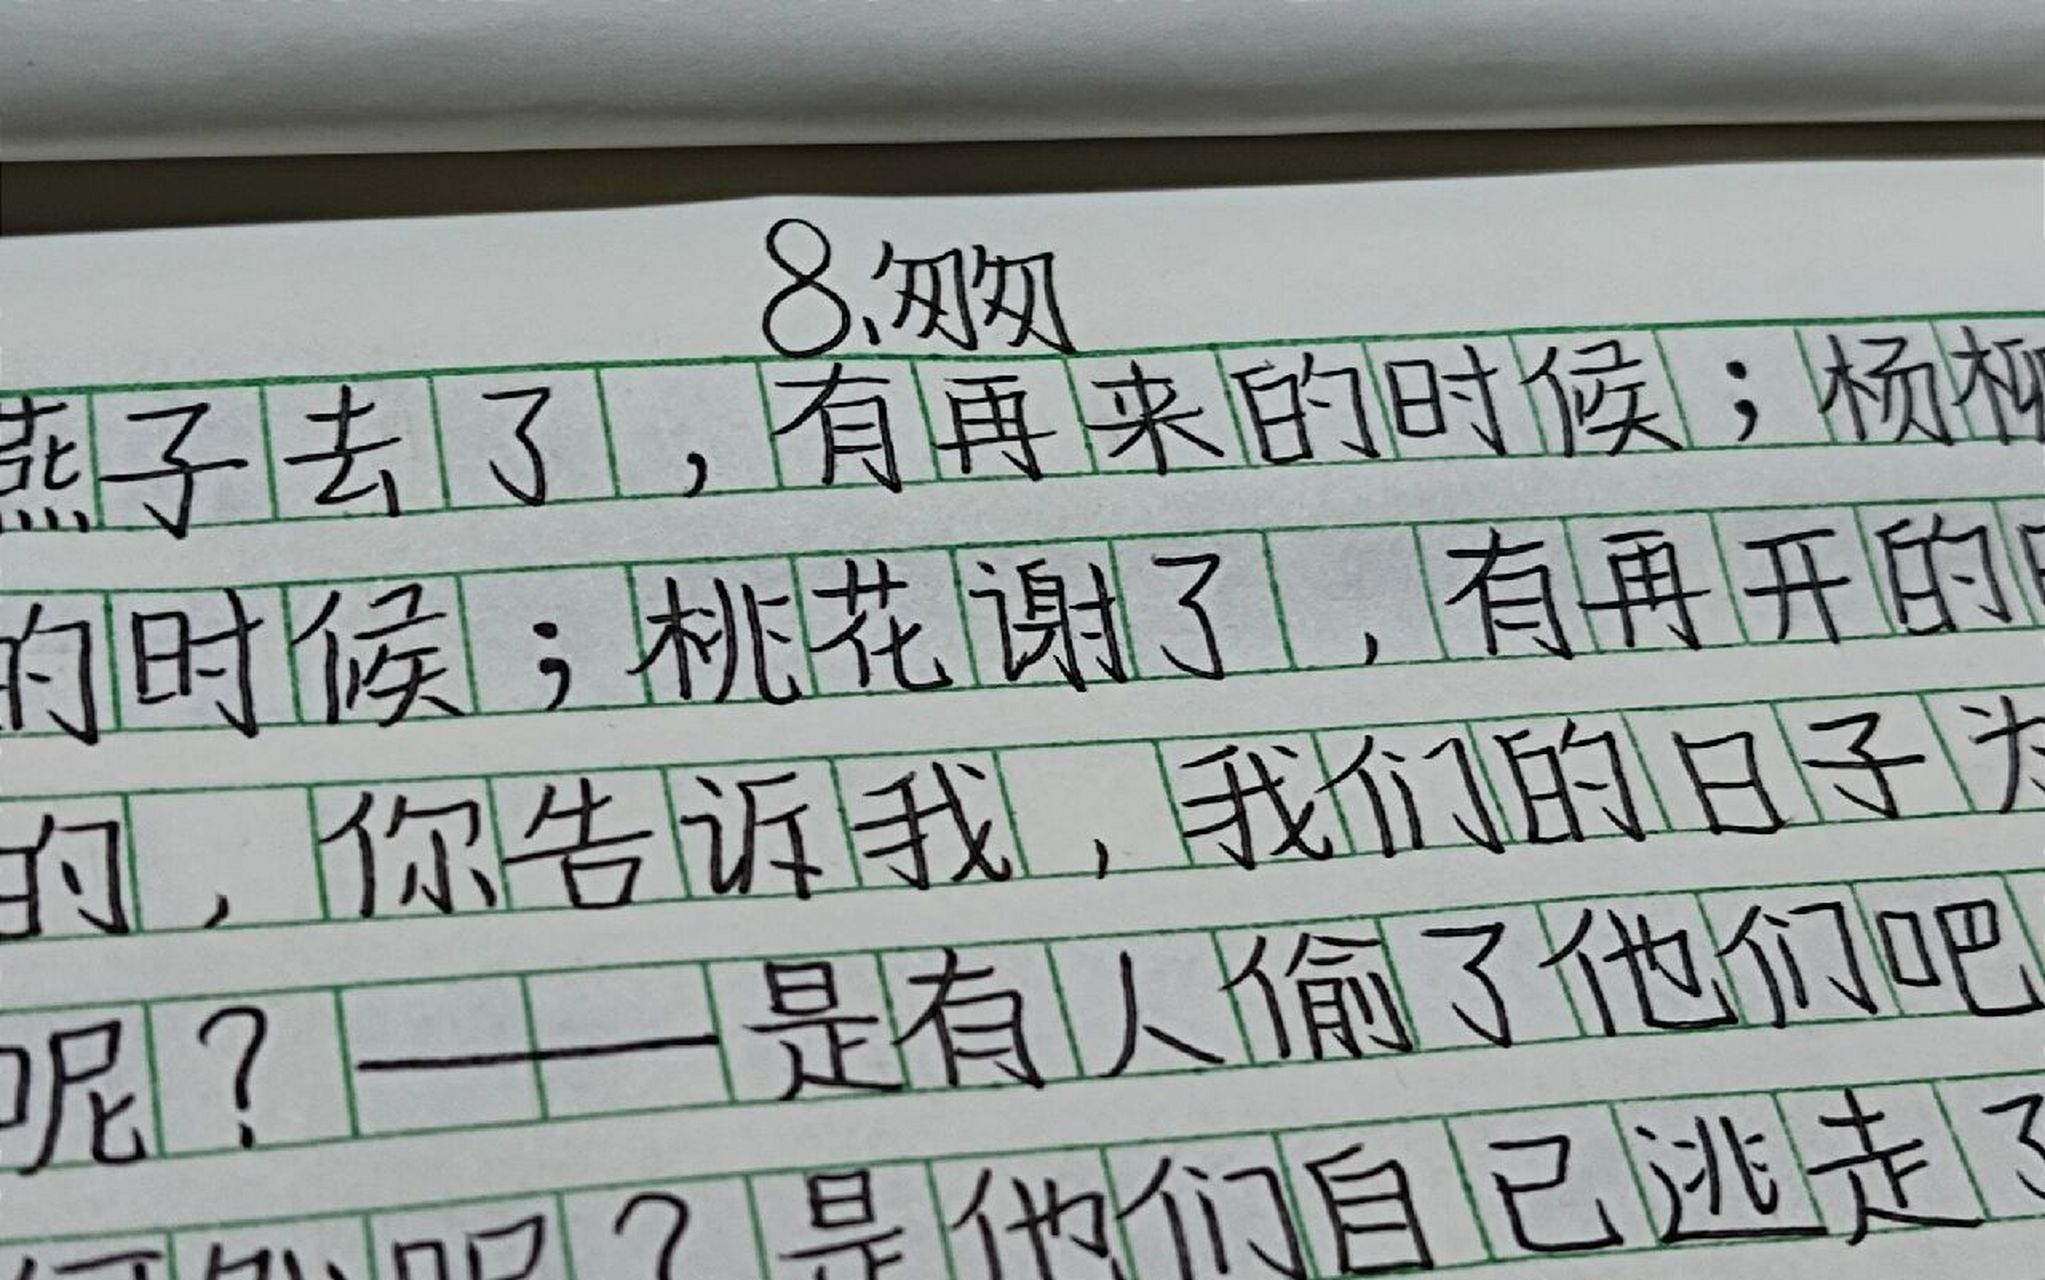 8、匆匆
燕子去了，有再来的时候；杨柳
的时候；桃花谢了，有再开的时
的，你告诉我，我们的日子为
呢？——是有人偷了他们吧
何处呢？是他们自己逃走了